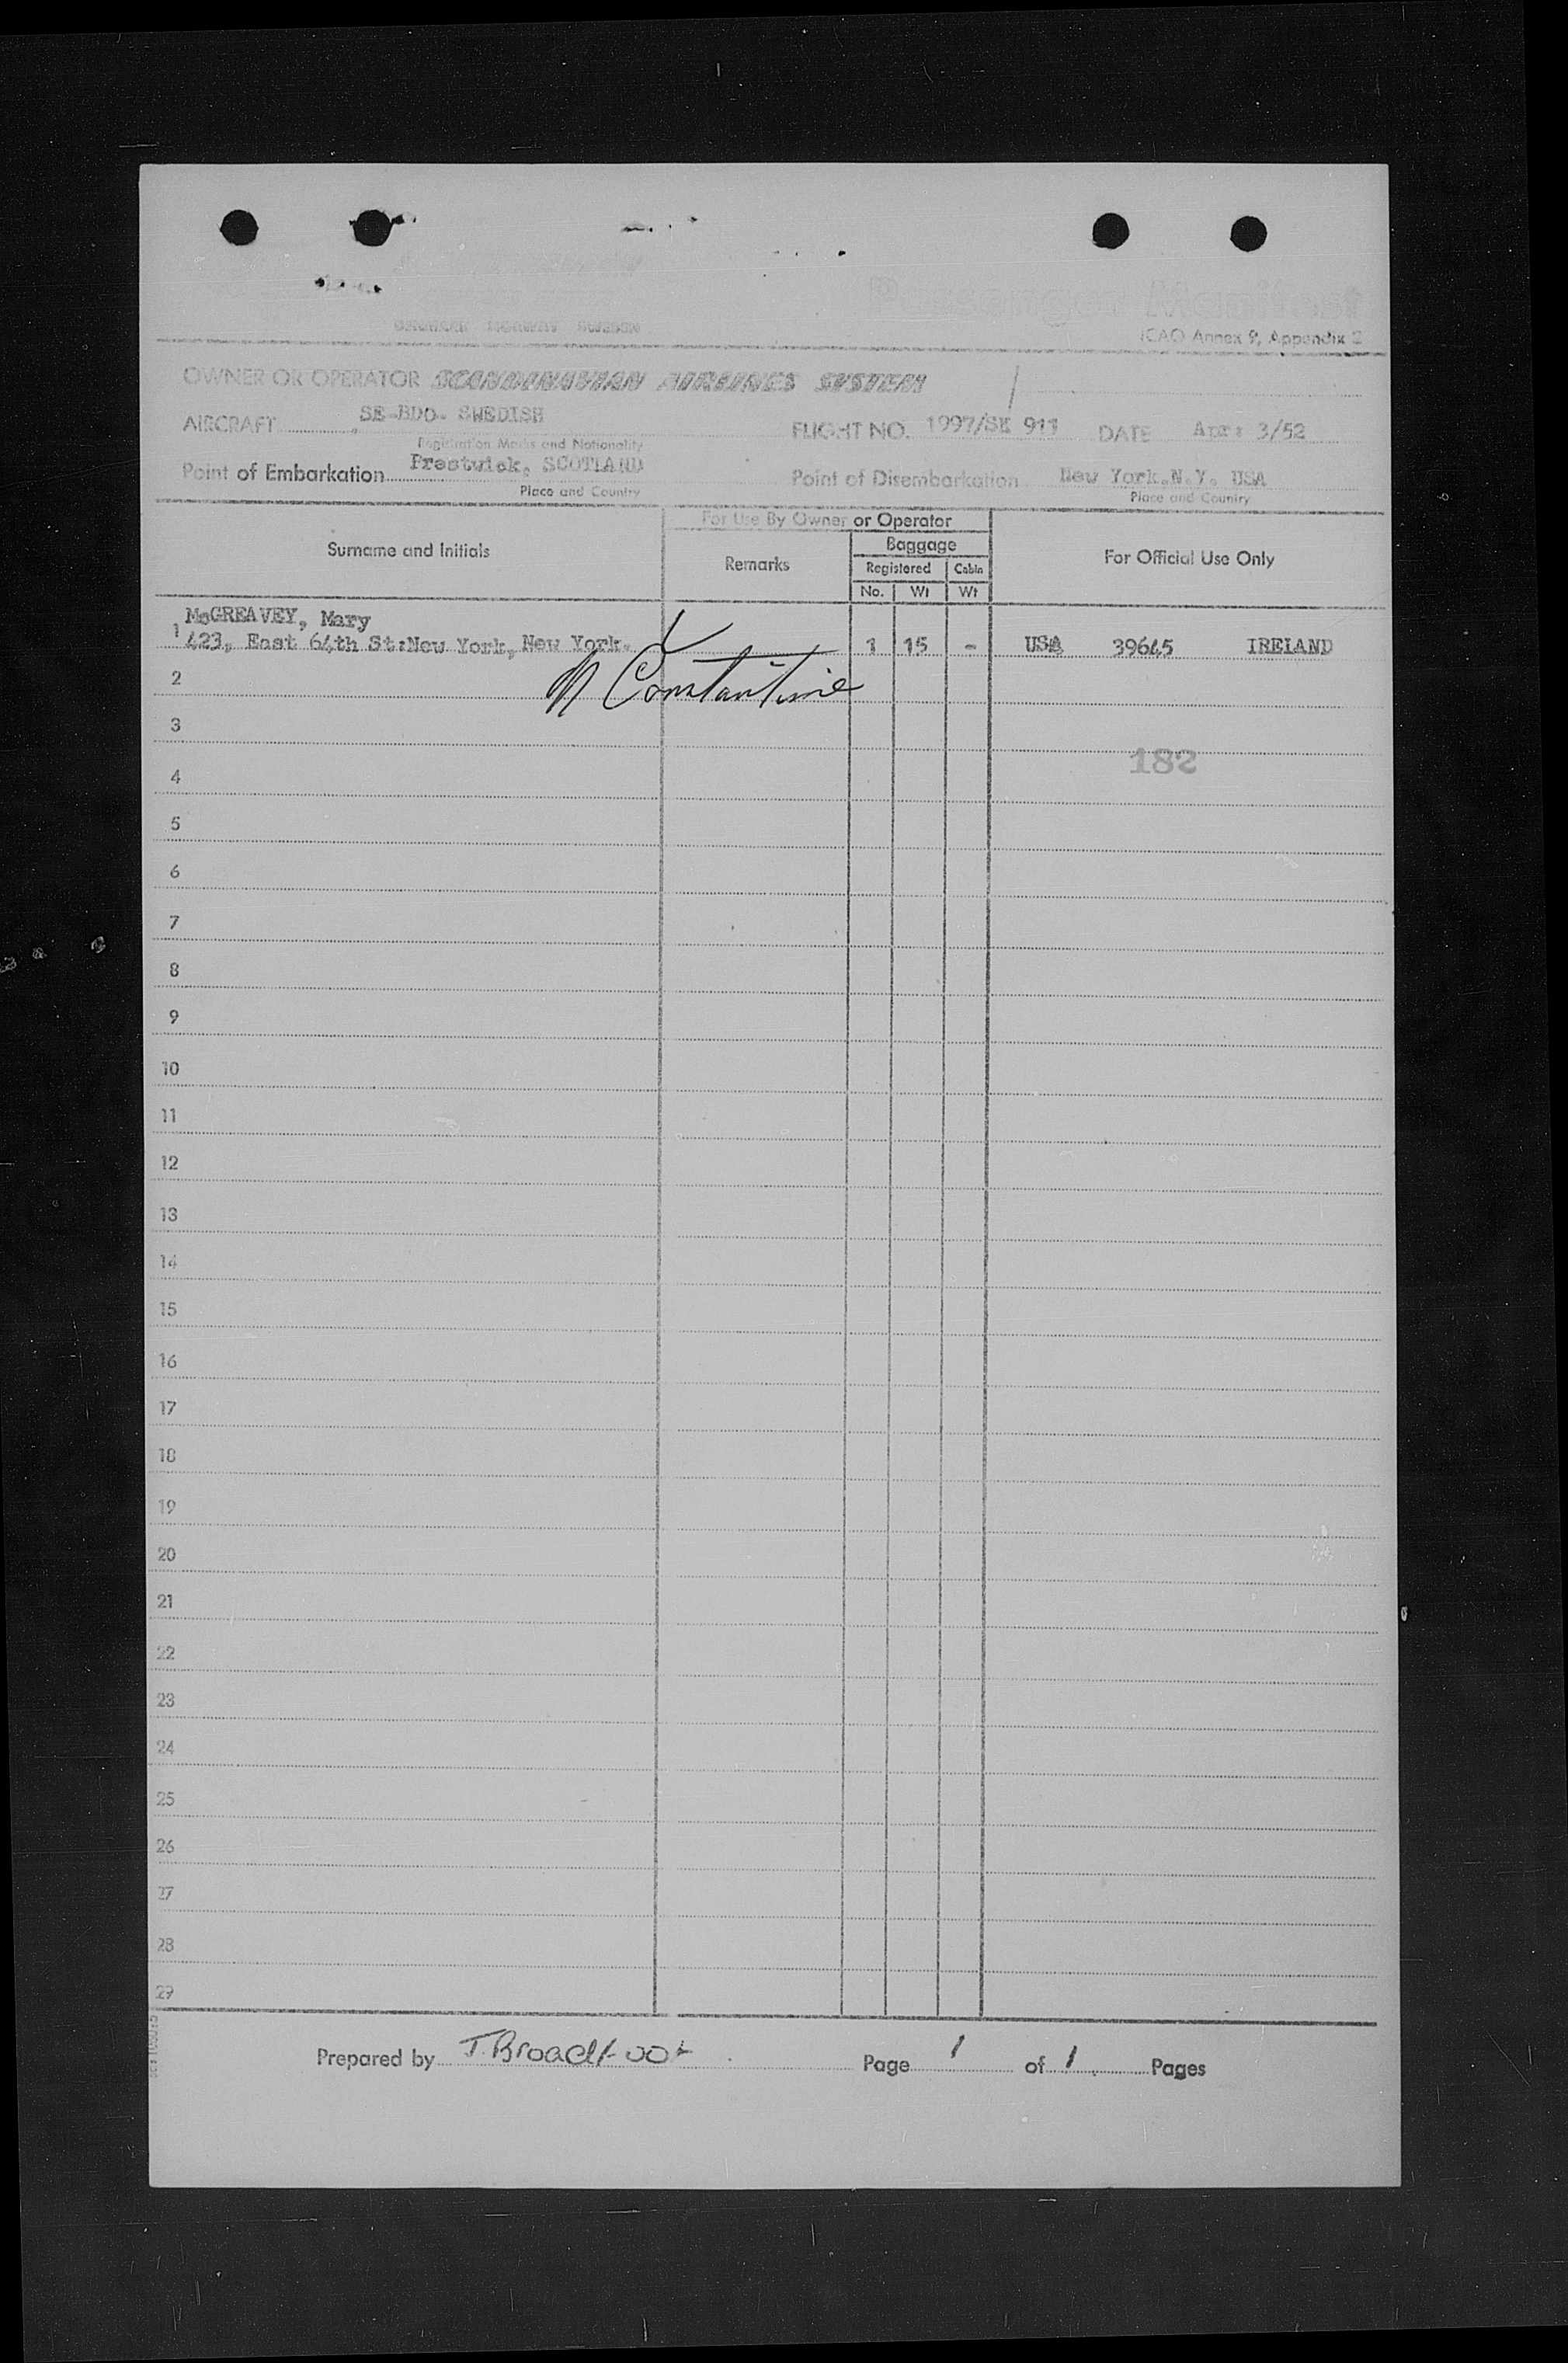 Passenger Manifest
DENMARK NORWAY SWEDEN
ICAO Annex 9, Appendix 2
OWNER OR OPERATOR SCANDINAVIAN AIRLINES SYSTEM
AIRCRAFT SE-BDO. SWEDISH FLIGHT NO. 1997/SK 911 DATE Apr: 3/52
Registration Marks and Nationality
Point of Embarkation Prestwick, SCOTLAND Point of Disembarkation New York.N.Y. USA
Place and Country Place and Country
For Use By Owner or Operator
Surname and Initials Remarks Baggage For Official Use Only
Registered Cabin
No. Wt Wt
McGREAVEY, Mary
1 423, East 64th St:New York, New York. 1 15 - USA 39645 IRELAND
2 Constantine
3
182
4
5
6
7
8
9
10
11
12
13
14
15
16
17
18
19
20
21
22
23
24
25
26
27
28
29
Prepared by J. Broadfoot Page 1 of 1 Pages